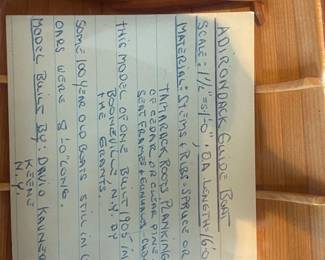 ADIRONDACK GUIDE BOAT
SCALE: 1½"=1'-0", O.A. LENGTH: 16'0
MATERIAL: STEMS & RIBS: SPRUCE OR
TAMARACK ROOTS, PLANKING
OF CEDAR OR CLEAR PINE
SEAT FRAMES & GUNWALS:
THIS MODEL OF ONE BUILT 1905 IN
BOONEVILLE N.Y. BY
THE GRANTS.
SOME 100 YEAR OLD BOATS STILL IN
OARS WERE 8'-0" LONG.
MODEL BUILT BY: DAVID
KEENE
N.Y.